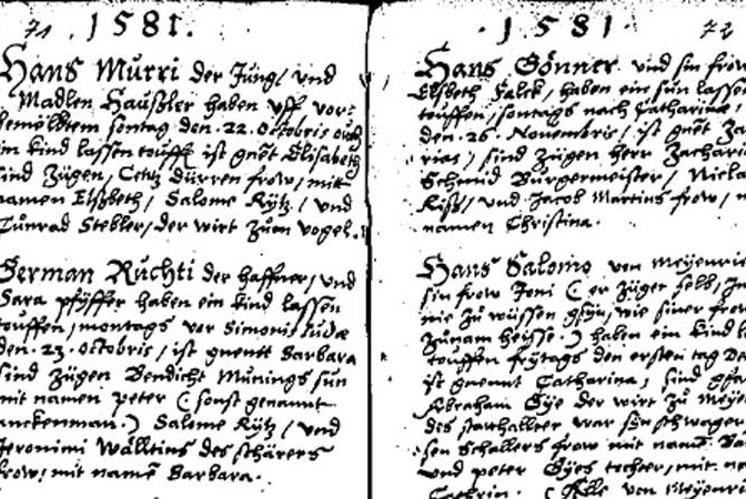 71 . 1581.
Hans Murri der Jung, und
Madlen Haußler haben uff vor-
gemöldtem sontag den . 22. Octobris ouch
ein kind lassen touffen ist gnēt Elisabeth
sind zügen, dürren frow, mit
namen Elßbeth, Salome Kytz, und
Cunrad Stebler, der wirt zum vogel.
German Ruchti der haffner, und
Sara pfyffer haben ein kind lassen
touffen, montags vor Simonis Judæ
den . 23. Octobris, ist gnentt Barbara
sind zügen Bendicht Munings sun
mit namen peter (: sonst genannt
anckenman.) Salome Kytz, und
Jeronimi Wälltins des schärers
frow, mit namē Barbara.
. 1581. 72
Hans Gönner und sin frow
Elsbeth Falck, haben ein sun lassen
touffen, sontags nach Catharine,
den . 26. Novembris, ist gnēt Za
rias, sind zügen herr Zachari
Schmid Burgermeister, Nicla
Kiß, und Jacob Martins frow, m
namen Christina.
Hans Salomo von Meyenrie
sin frow Joni (: er züger selb,
nie zu wüssen gsyn, wie siner frow
zunam heisse.) haben ein kind l
touffen frytags den ersten tag De
ist gnennt Catharina, sind
Abraham Gye der wirt zu Meye
des statthallter war syn schwager
sen Schallers frow mit namē Ba
und peter Gyes tochter, mit n
Cathrin. von Meyenri